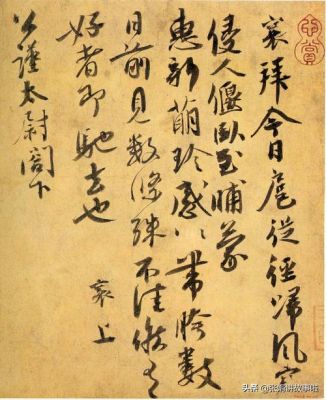 襄拜今日扈從徑歸風寒
侵人偃臥至晡蒙
惠新萌珍感〻帶胯數
日前見數條殊不佳候有
好者即馳去也
襄上
公謹太尉閣下
头条 @张 讲故事啦